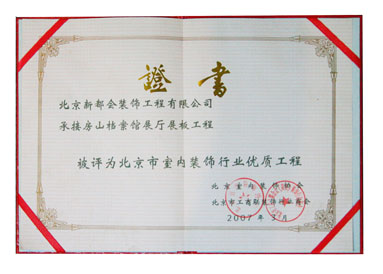 證書
北京新都会装饰工程有限公司
承接房山档案馆展厅展板工程
被评为北京市室内装饰行业优质工程
北京室内装饰协会
北京市工商联装饰行业商会
2007年3月